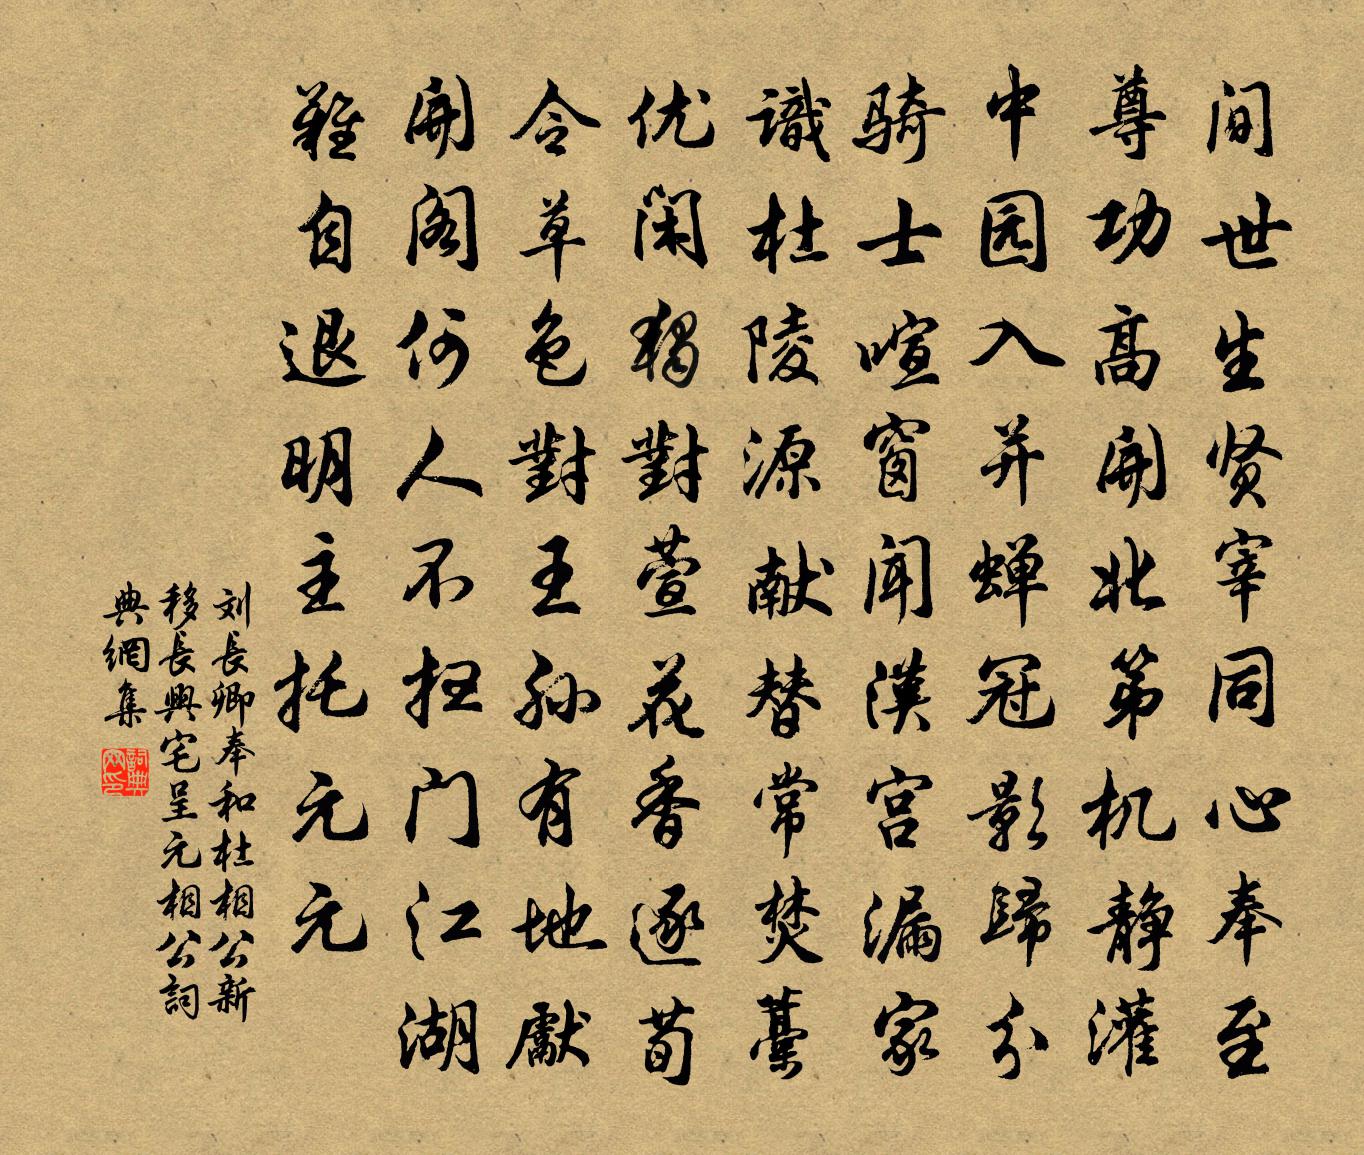 间世生贤宰同心奉至
尊功高開北第机静灌
中园入并蝉冠影歸分
骑士喧窗聞漢宫漏家
識杜陵源献替常焚藁
优閑獨對萱花香逐荀
令草色對王孙有地獻
開閣何人不扫门江湖
難自退明主托元元
刘長卿奉和杜相公新
移長興宅呈元相公詞
典網集
詞典网印